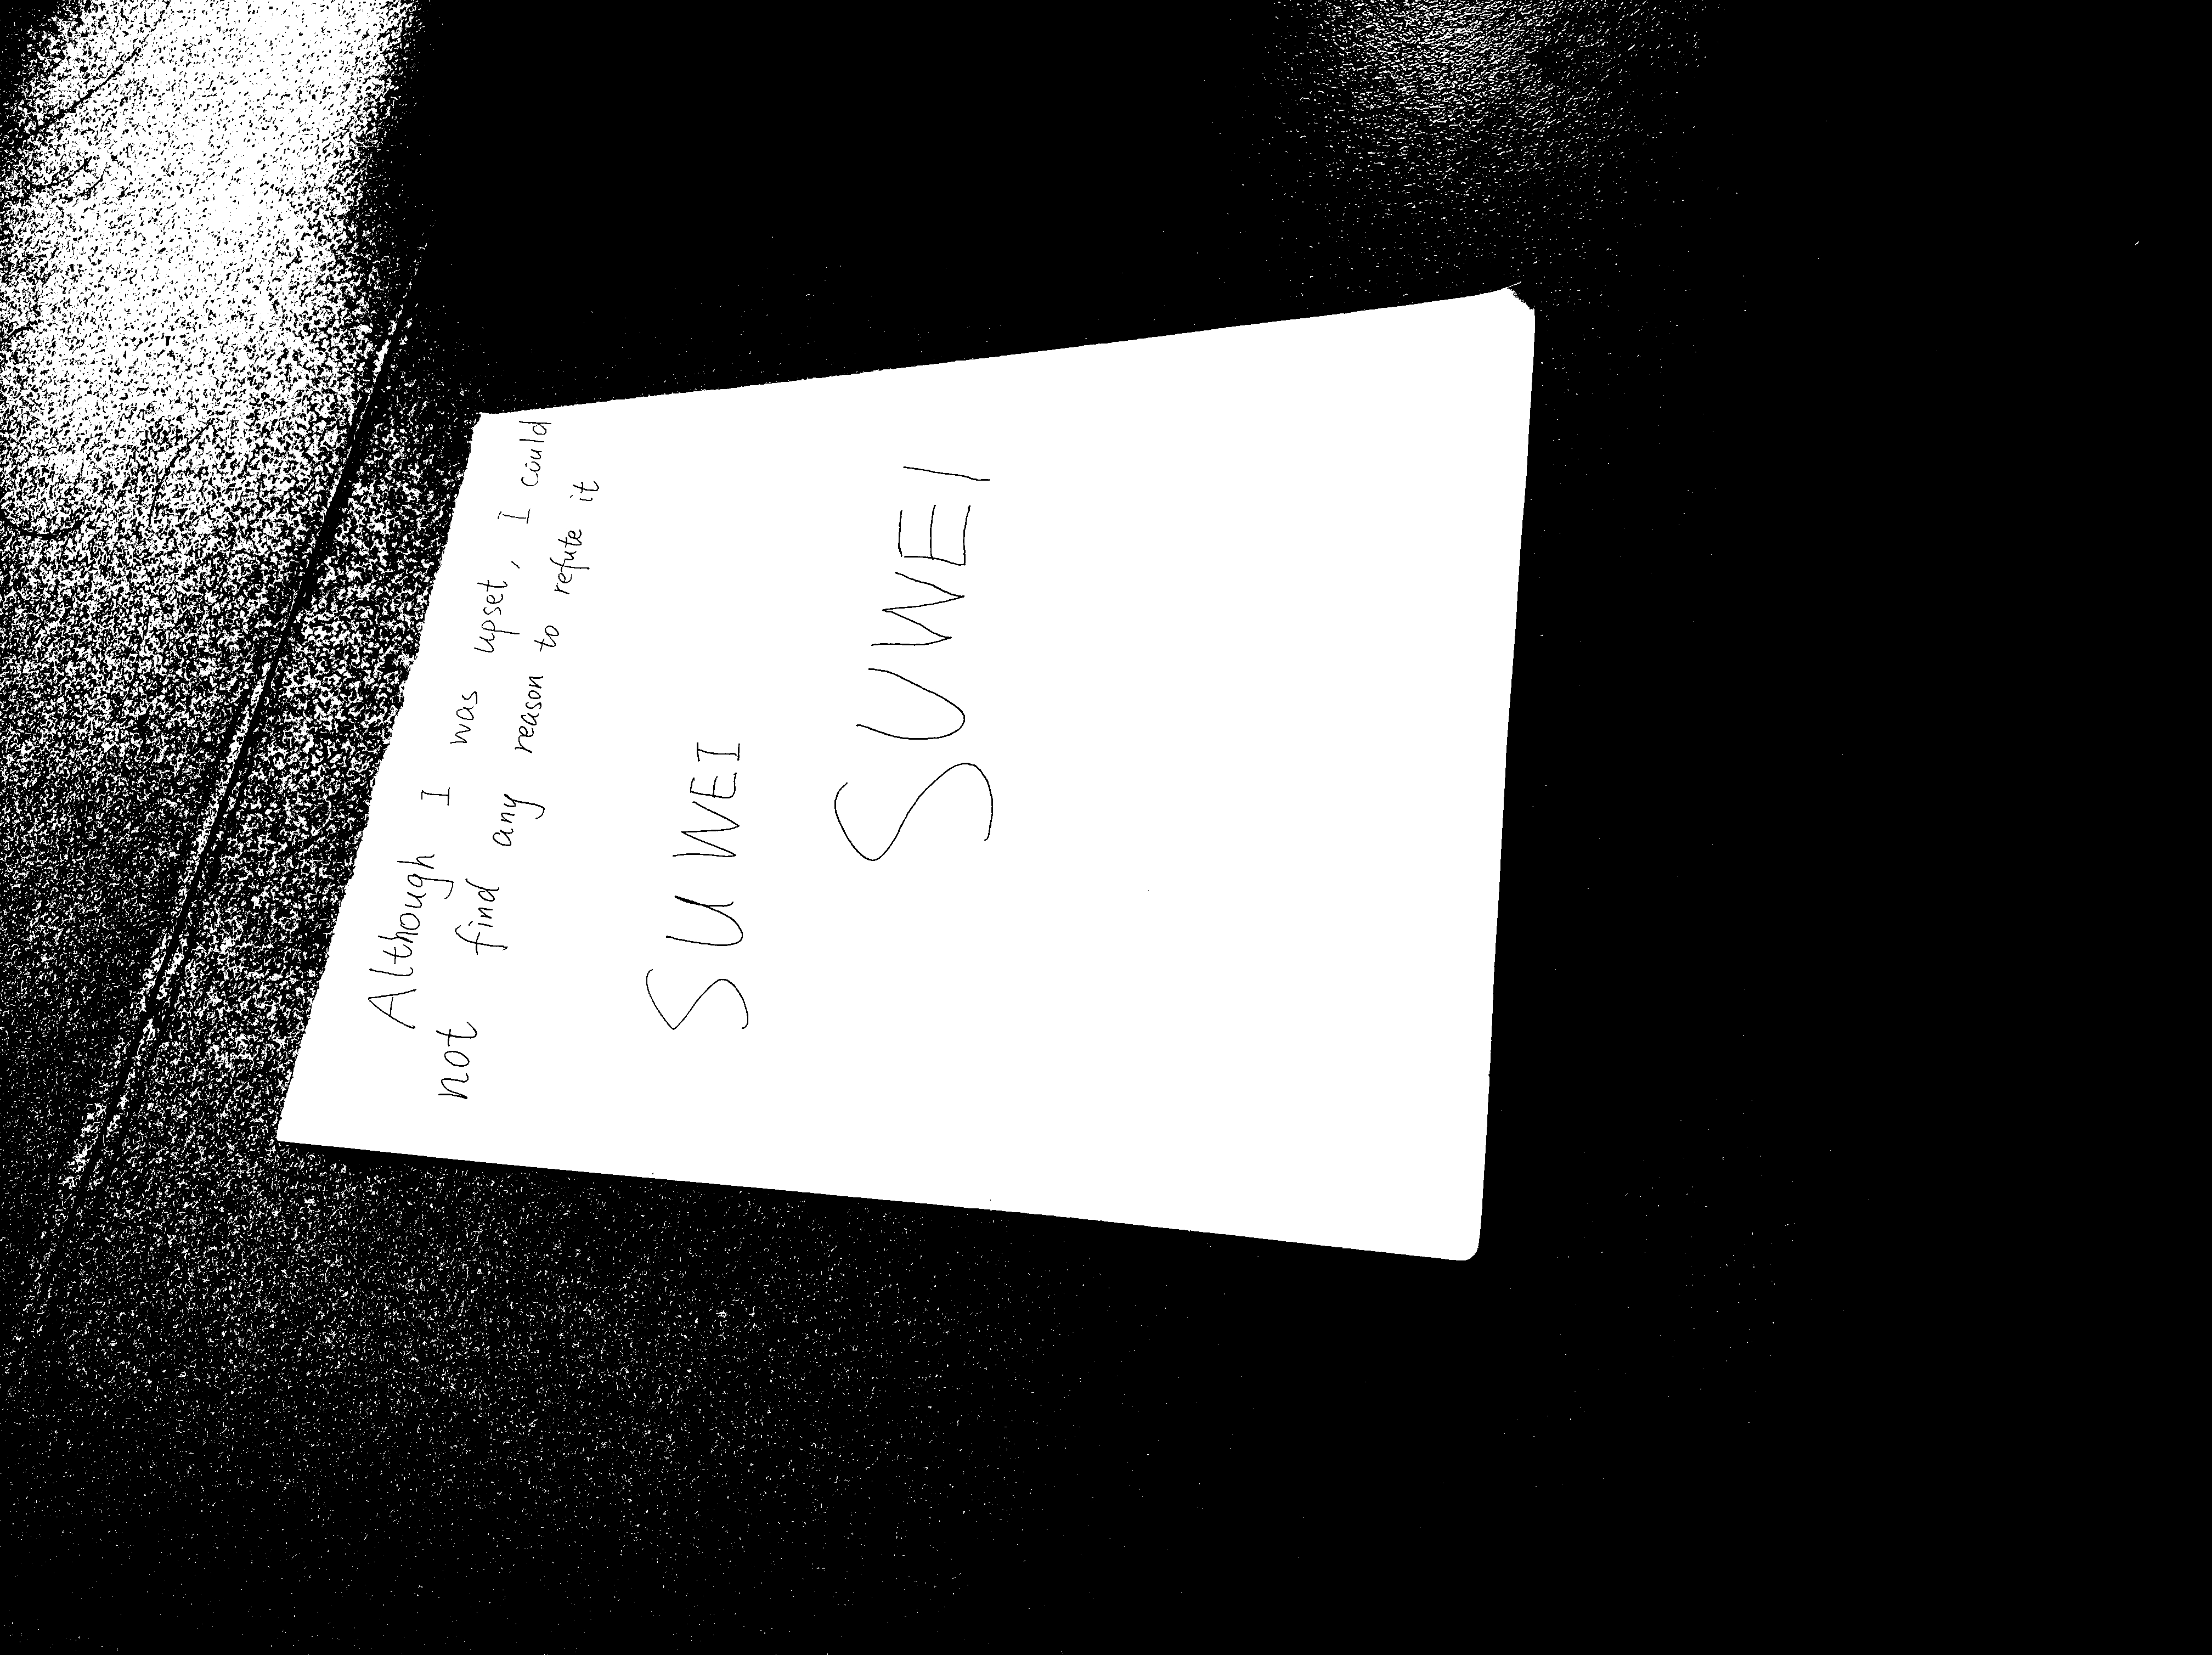 Although I was upset, I could
not find any reason to refute it
SUWEI
SUWEI